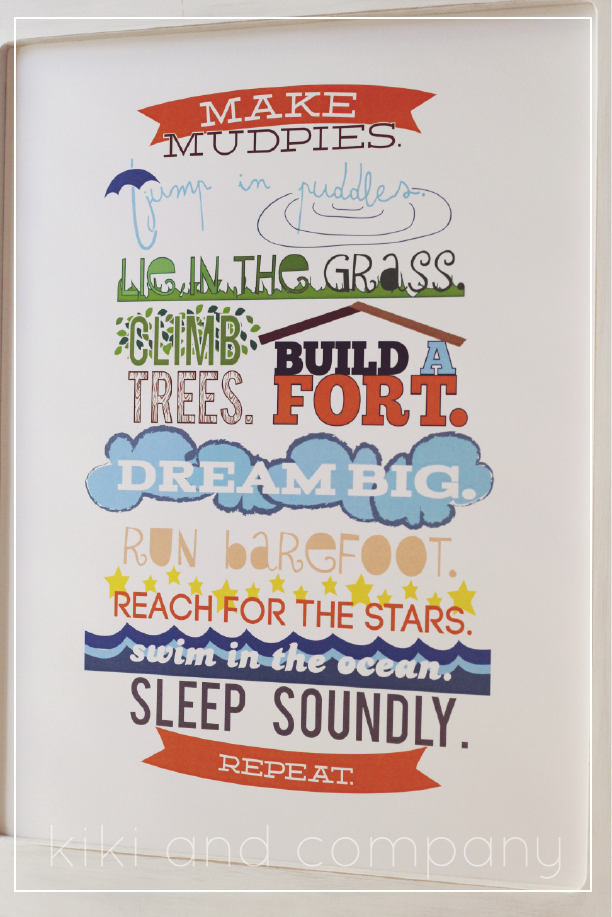 MAKE
MUDPIES.
jump in puddles.
LIE IN THE GRASS.
CLIMB
TREES.
BUILD A
FORT.
DREAM BIG.
RUN baREFOOT.
REACH FOR THE STARS.
swim in the ocean.
SLEEP SOUNDLY.
REPEAT.
kiki and company